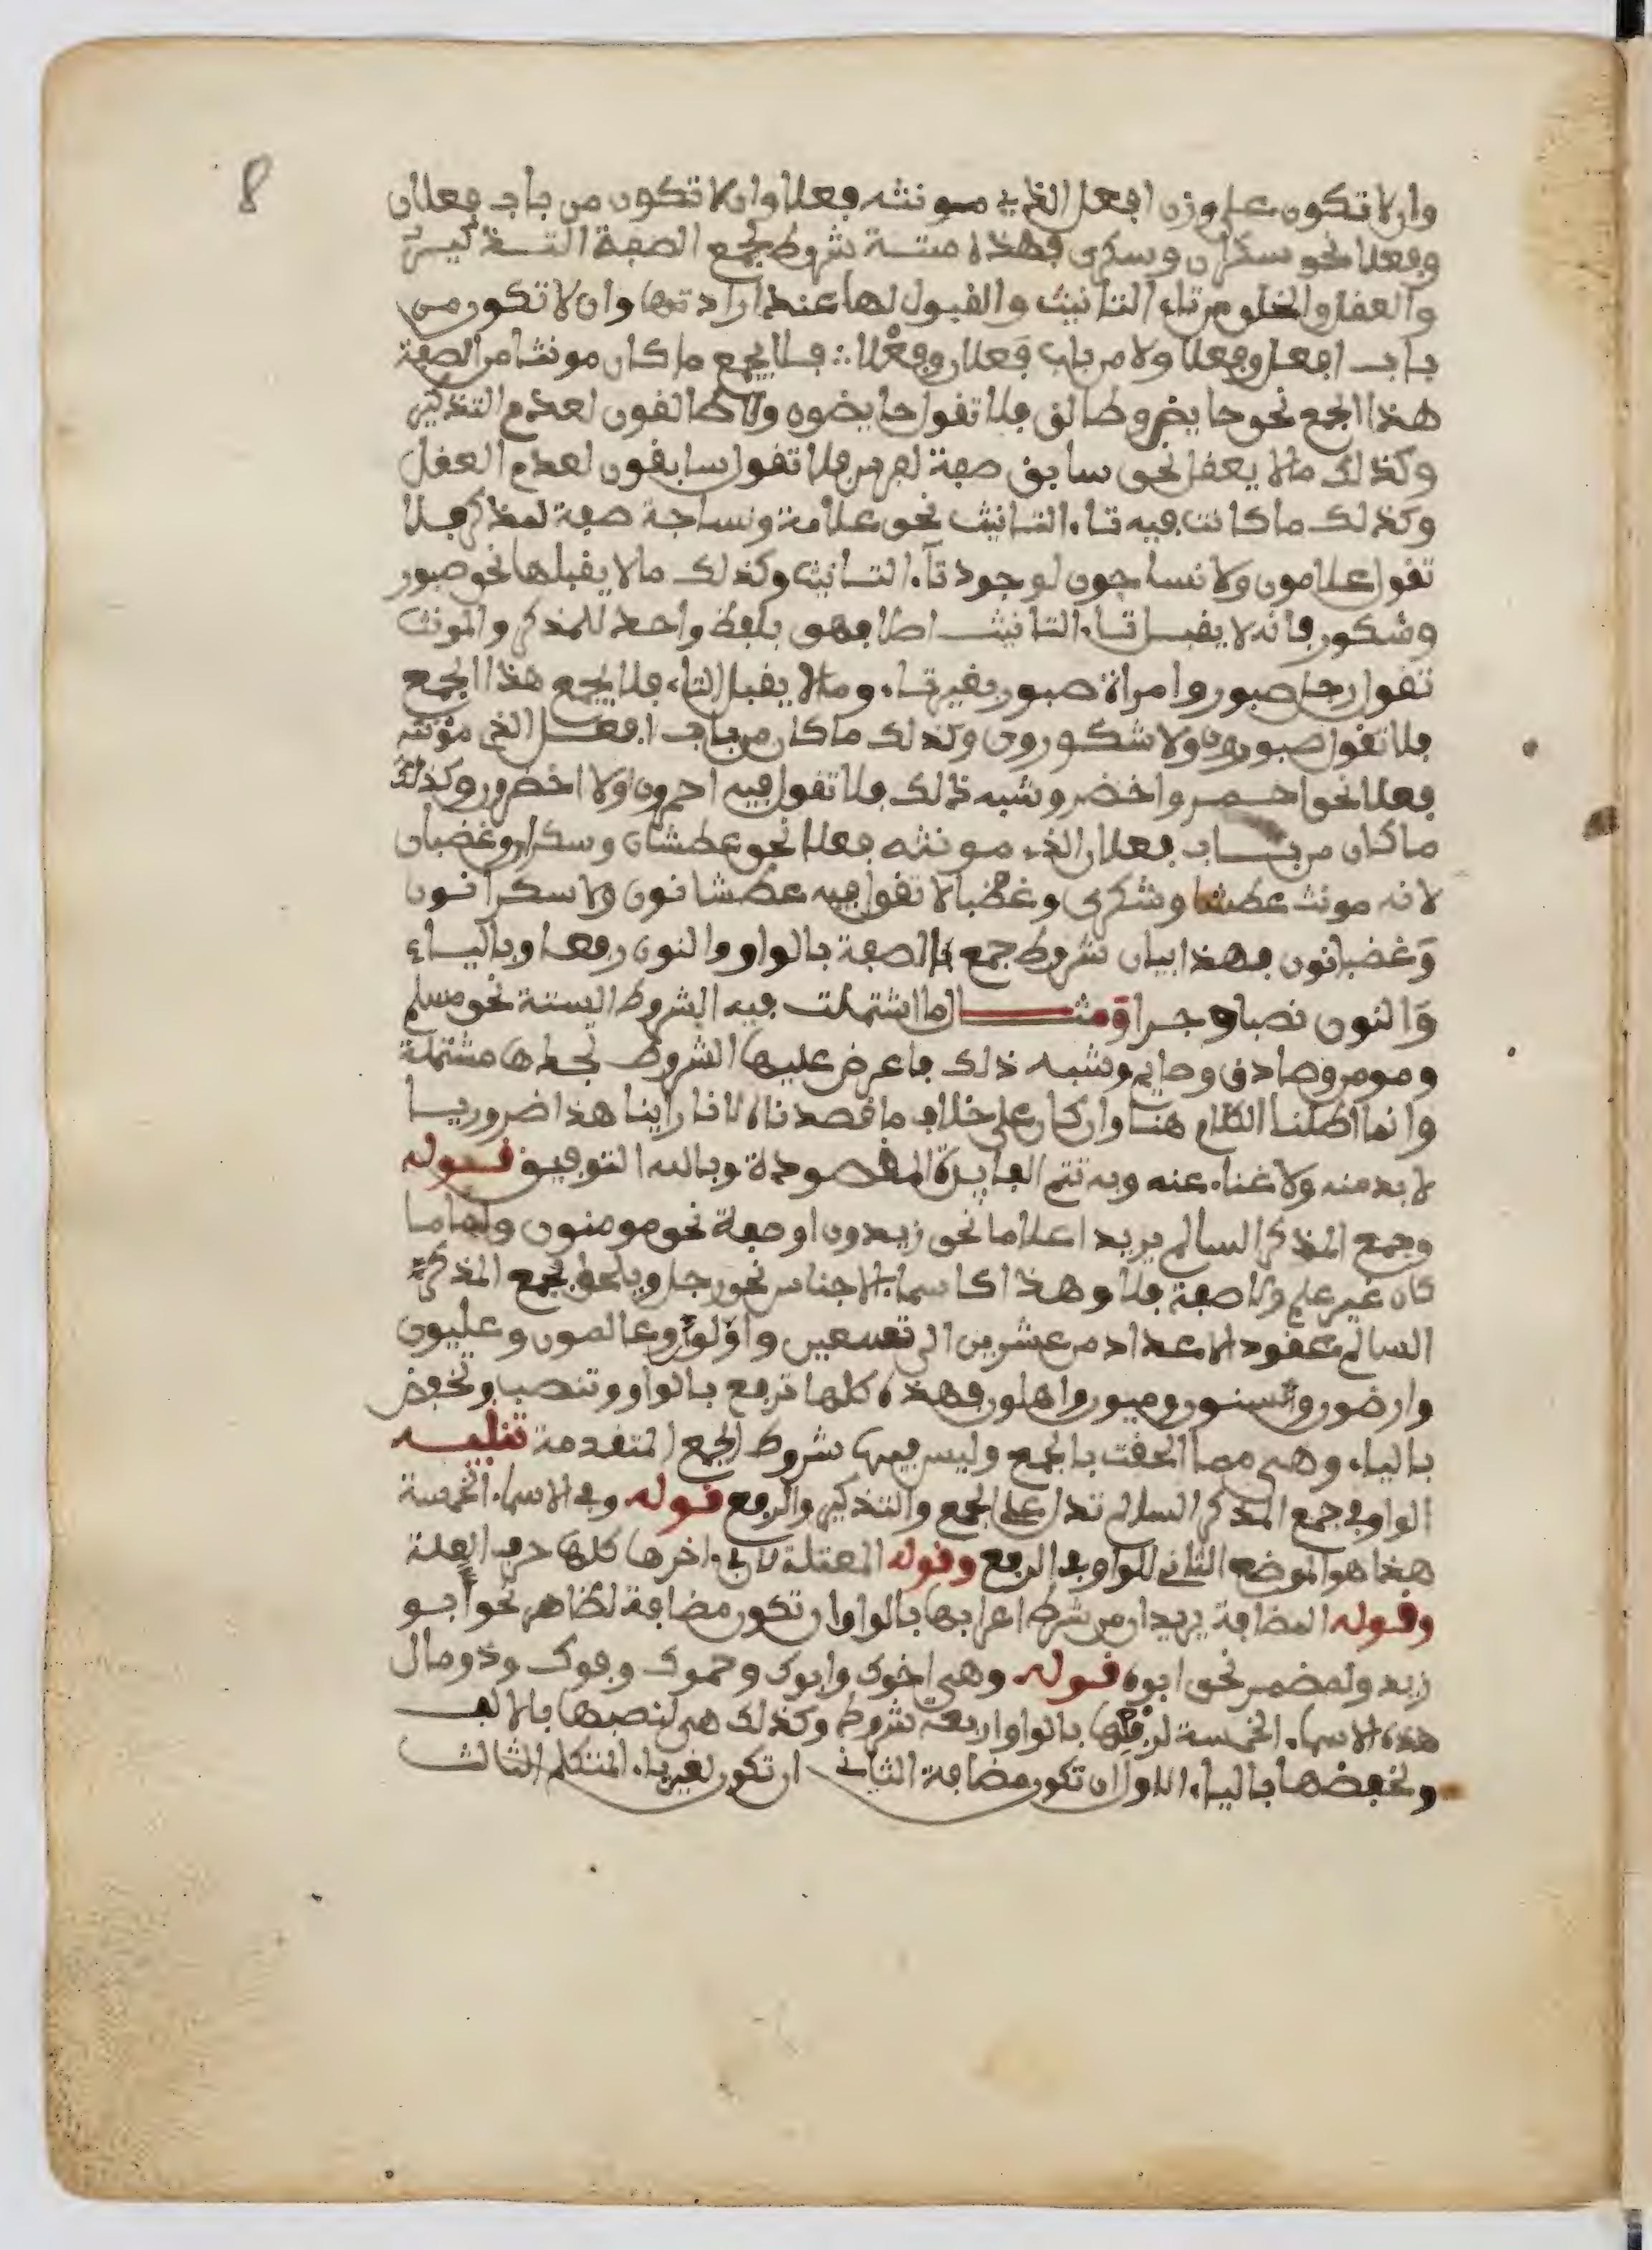 8
وان لا تكون على وزن افعل الذي مونثه فعلا وان لا تكون من باب فعلان
وفعلا نحو سكران وسكرى فهذه ستة شروط لجمع الصفة التذكير
والعقل والخلو من تاء التانيث والقبول لها عند ارادتها وان لا تكون من
باب افعل وفعلا ولا من باب فَعلان وفَعْلا ∴ فلا يجمع ما كان مونثا من الصفة
هذا الجمع نحو حايض وطالق فلا تقول حايضون ولا طالقون لعدم التذكير
وكذلك مالا يعقل نحو سابق صفة لفرس فلا تقول سابقون لعدم العقل
وكذلك ما كانت فيه تاء التانيث نحو علامة ونساجة صفة لمذكر فلا
تقول علامون ولا نساجون لوجود تآء التانيث وكذلك مالا يقبلها نحو صبور
وشكور فانه لا يقبل تاء التانيث اصلا فهو بلفظ واحد للمذكر والمونث
تقول رجل صبور وامراة صبور بغير تاء وما لا يقبل التاء فلا يجمع هذا الجمع
فلا تقول صبورون ولا شكورون وكذلك ما كان من باب افعل الذي مؤنثه
فعلا نحو احمر واخضر وشبه ذلك فلا تقول فيه احمرون ولا اخضرون وكذلك
ما كان من باب فعلان الذي مونثه فعلا نحو عطشان وسكران وغضبان
لانه مونث عطشا وسكرى وغضبا لا تقول فيه عطشانون ولا سكرانون
وَغضبانون فهذا بيان شروط جمع الصفة بالواو والنون رفعا وبالياء
وَالنون نصبا وجرا وَمثال ما اشتملت فيه الشروط الستة نحو مسلم
ومومن وصادق وصايم وشبه ذلك فاعرض عليها الشروط تجدها مشتملة
وانما اطلنا الكلام هنا وان كان على خلاف ما قصدناه لانا راينا هذا ضروريا
لا بد منه ولا غناء عنه وبه تتم الفايدة المقصودة وبالله التوفيق قوله
وجمع المذكر السالم يريد اعلاما نحو زيدون او صفة نحو مومنون واما ما
كان غير علم ولا صفة فلا وهذا كاسماء الاجناس نحو رجل ويلحق بجمع المذكر
السالم عقود الاعداد من عشرين الى تسعين واولوا وعالمون وعليون
وارضون وسنون وميون واهلون فهذه كلها ترفع بالواو وتنصب وتخفض
بالياء وهى مما الحقت بالجمع وليس فيها شروط الجمع المتقدمة تنبيه
الواو في جمع المذكر السالم تدل على الجمع والتذكير والرفع قوله وفي الاسماء الخمسة
هذا هو الموضع الثاني للواو في الرفع وقوله المعتلة لان في اخرها كلها حرف العلة
وقوله المضافة يريد ان من شرط اعرابها بالواو ان تكون مضافة لظاهر نحو ابو
زيد ولمضمر نحو ابوه قوله وهي اخوك وابوك وحموك وفوك وذو مال
هذه الاسماء الخمسة لرفعها بالواو اربعة شروط وكذلك هى لنصبها بالالف
ولخفضها بالياء الاول ان تكون مضافة الثاني ان تكون لغير ياء المتكلم الثالث